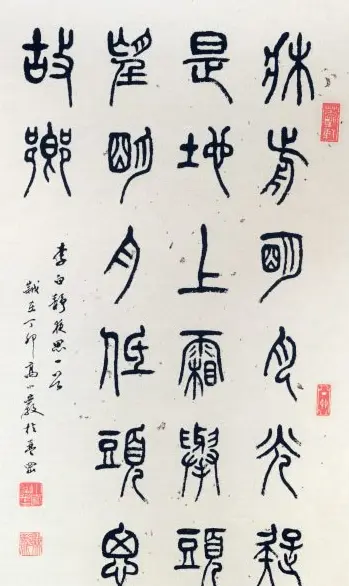 牀前明月光疑
是地上霜舉頭
望明月低頭思
故鄉
李白靜夜思一首
丁卯